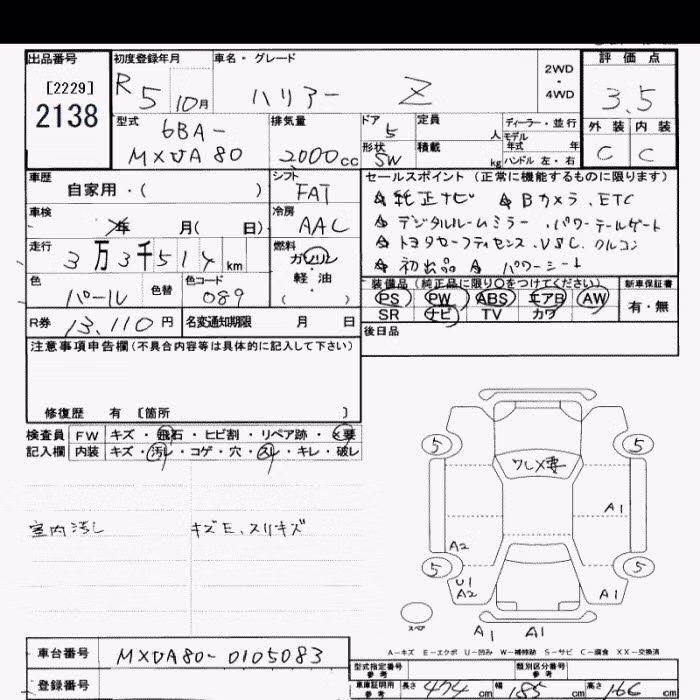 出品番号 初度登録年月 車名・グレード 2WD・4WD 評価点
[2229]
2138
R 5 10月 ハリアー Z 3.5
型式 排気量 ドア 定員 ディーラー・並行 外装 内装
6BA- 5 人 モデル年式 年
MXUA80 2000cc 形状 SW 積載 kg ハンドル 左・右 C C
車歴 シフト セールスポイント(正常に機能するものに限ります)
自家用・( ) FAT ☆純正ナビ ☆Bカメラ、ETC
車検 年 月( 日) 冷房 AAC ☆デジタルルームミラー、パワーテールゲート
走行 3万3千514km 燃料 ガソリン・軽油 ( ) ☆トヨタセーフティセンス、VSC、クルコン
☆初出品 ☆パワーシート
色 パール 色替 色コード 089 装備品(純正品に限り○をつけてください) 新車保証書
PS PW ABS エアB AW 有・無
SR ナビ TV カワ
R券 13,110円 名変通知期限 月 日 後日品
注意事項申告欄(不具合内容等は具体的に記入して下さい)
修復歴 有 〔箇所 〕
検査員 FW キズ・飛石・ヒビ割・リペア跡・X要
記入欄 内装 キズ・汚レ・コゲ・穴・スレ・キレ・破レ
室内汚し キズE、スリキズ
5 5
ワレX要
A1
A2
5 5
U1
A2 A1
スペア
A1 A1
A-キズ E-エクボ U-凹み W-補修跡 S-サビ C-腐食 XX-交換済
車台番号 MXUA80-0105083
型式指定番号 参考 類別区分番号 参考
登録番号 車庫証明用 参考 長さ 474cm 幅 185cm 高さ 166cm